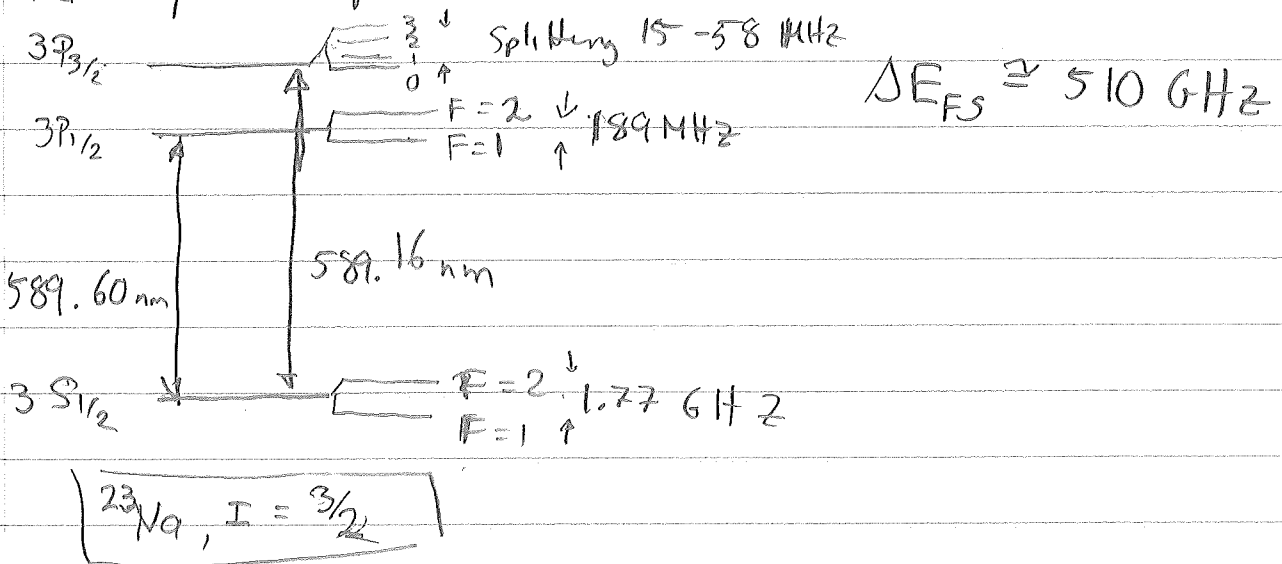 3P3/2
3
2
1
0
Splitting 15-58 MHz
ΔE_FS ≅ 510 GHz
3P1/2
F=2
F=1
189 MHz
589.60 nm
589.16 nm
3 S1/2
F=2
F=1
1.77 GHz
23Na, I = 3/2